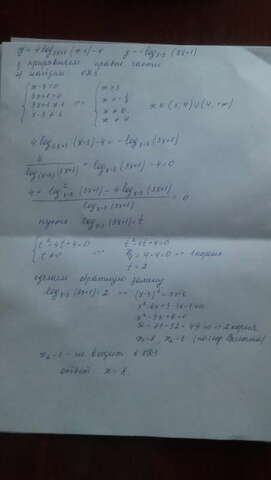 y = 4 log₃ₓ₊₁ (x-3) - 4    y = -logₓ₋₃ (3x+1)
1 приравняем правые части
2 найдём ОДЗ
{ x-3 > 0    { x > 3
3x+1 > 0    x > -1/3
3x+1 ≠ 1    x ≠ 0    x ∈ (3;4) ∪ (4;+∞)
x-3 ≠ 1    x ≠ 4
4 log₃ₓ₊₁ (x-3) - 4 = -logₓ₋₃ (3x+1)
4/logₓ₋₃(3x+1) + logₓ₋₃ (3x+1) - 4 = 0
(4 + log²ₓ₋₃ (3x+1) - 4 logₓ₋₃ (3x+1))/logₓ₋₃ (3x+1) = 0
пусть logₓ₋₃ (3x+1) = t
{ t²-4t+4=0    t²-4t+4=0
t ≠ 0    = 4-4=0 → 1 корень
t = 2
сделаем обратную замену
logₓ₋₃ (3x+1) = 2    (x-3)² = 3x+1
x²-6x+9-3x-1=0
x²-9x+8=0
81-32=49 2 корня
x₁=8, x₂=1 (по теор. Виета)
x₂=1 - не входит в ОДЗ
ответ x=8.